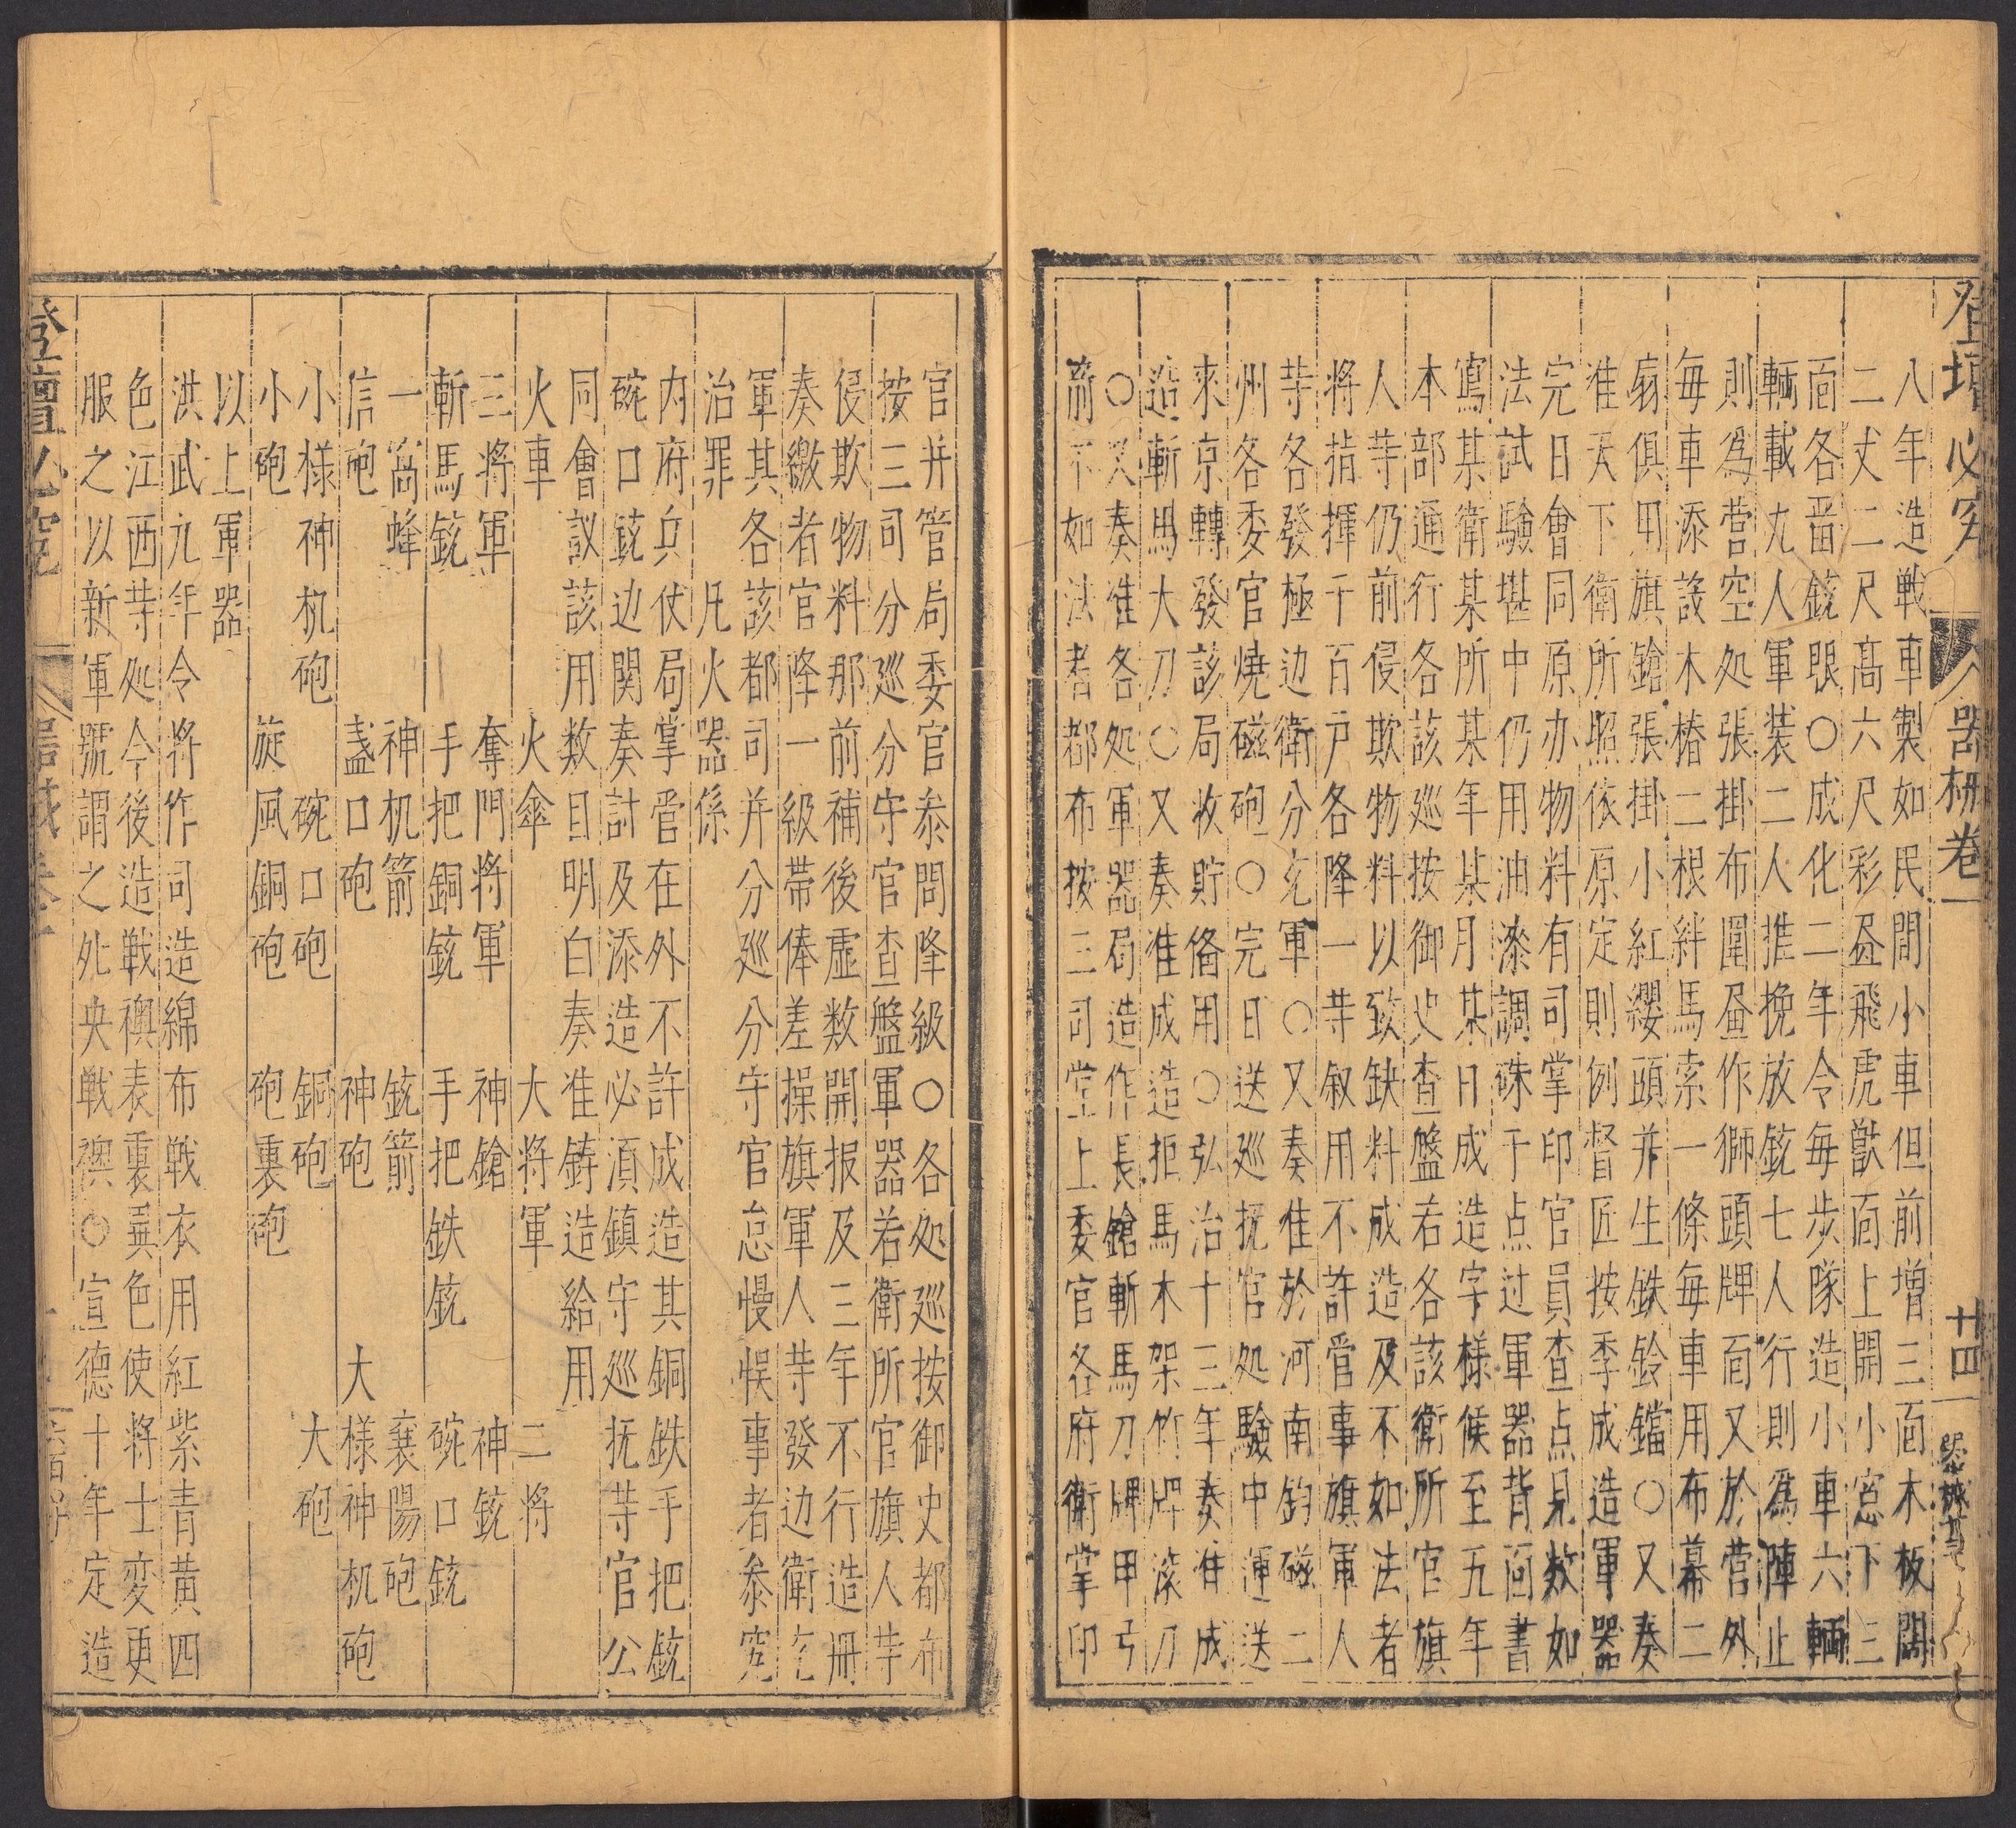 登壇必究 器械卷一 廿四
八年造戦車製如民間小車但前增三面木板闊
二丈二尺高六尺彩畫飛虎獸面上開小窓下三
面各畱銃眼〇成化二年令每步隊造小車六輛
輛載九人軍裝二人推挽放銃七人行則爲陣止
則爲营空处張掛布圍畫作獅頭牌面又於营外
每車添設木樁二根絆馬索一條每車用布幕二
扇俱用旗鎗張掛小紅纓頭并生鉄鈴鐺〇又奏
准天下衛所照依原定則例督匠按季成造軍器
完日會同原办物料有司掌印官員查点見数如
法試驗堪中仍用油漆調硃于点过軍器背面書
寫某衛某所某年某月某日成造字様候至五年
本部通行各該巡按御史查盤若各該衛所官旗
人等仍前侵欺物料以致缺料成造及不如法者
将指揮千百户各降一等叙用不許管事旗軍人
等各發極边衛分充軍〇又奏准於河南鈞磁二
州各委官燒磁砲〇完日送巡抚官处驗中運送
來京轉發該局收貯俻用〇弘治十三年奏准成
造斬馬大刀〇又奏准成造拒馬木架竹牌滚刀
〇又奏准各处軍器局造作長鎗斬馬刀牌甲弓
箭不如法者都布按三司堂上委官各府衛掌印
官并管局委官叅問降級〇各处巡按御史都布
按三司分巡分守官查盤軍器若衛所官旗人等
侵欺物料那前補後虛数開报及三年不行造冊
奏繳者官降一級帶俸差操旗軍人等發边衛充
軍其各該都司并分巡分守官怠慢悞事者叅究
治罪 凡火器係
内府兵仗局掌管在外不許成造其銅鉄手把銃
碗口銃边関奏討及添造必湏鎮守巡抚等官公
同會议該用数目明白奏准鋳造給用
火車 火傘 大将軍 二将
三将軍 奪門将軍 神鎗 神銃
斬馬銃 手把銅銃 手把鉄銃 碗口銃
一窩蜂 神机箭 銃箭 襄陽砲
信砲 盞口砲 神砲 大様神机砲
小様神机砲 碗口砲 銅砲 大砲
小砲 旋風銅砲 砲裏砲
以上軍器
洪武九年令将作司造綿布戦衣用紅紫青黄四
色江西等处今後造戦襖表裏異色使将士变更
服之以新軍號謂之处央戦襖〇宣德十年定造
登壇必究 器械卷一